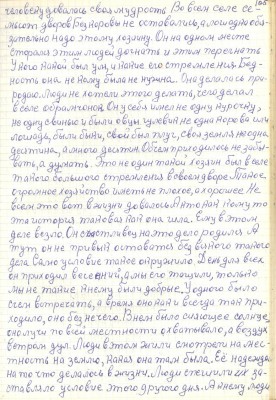 человеку давалась своя мудрость. Во всем селе се-
мьсот дворов Бедноровы не оставались, а лошадно обя-
зательно надо этому хозяину. Он на одном месте
старался этим людей догнать и этим перегнать
У кого какой был ум, и какие его стремления. Бед-
ность она не кому была не нужна. Она делалась при-
родою. Люди не хотели этого делать, чего делал
в селе обреченной. Он у себя имел не одну курочку,
не одну свинью и были овцы гулевые не одна корова или
лошадь, были быки, свой был плуг, своя земля не одна
десятина, а много десятин. Обсем приходилось не забы-
вать, а думать. Это не один такой хозяин был в селе
такого большого стремления в своем дворе. Такое
огромное хозяйство иметь не плохое, а хорошее. Не
всем это вот в жизни довалось Антон как почему то
эта история такова как она шла. Ему в этом
деле везло. Он счастливец на это дело родился. А
тут он не привык оставаться без какого такого
дела. Само условие такое окружило. День для всех
он приходил весенний, а мы его тащили, только
мы не такие к нему были добрые. Угодного было
всем встречать, а время оно как и всегда так при-
ходило, оно без нечего. В нем было сияющее солнце,
оно лучи по всем местности охватывало, а воздух
ветром дул. Люди в этом жили смотрели на мес-
тность на землю, какая она там была. Её надежда
на то что делалось в жизни. Люди спешили их за-
ставляло условие этого другого дня. А к нему люди